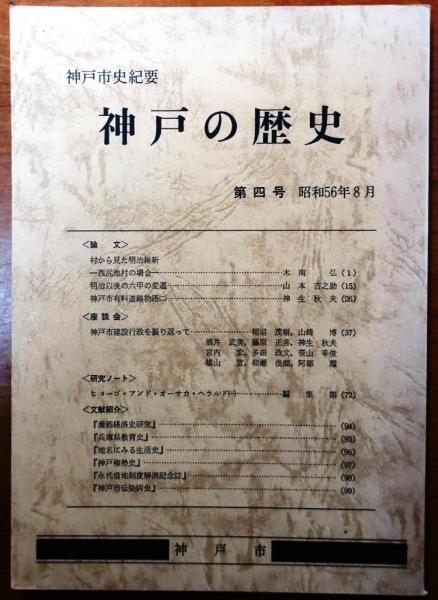 神戸市史紀要
神戸の歴史
第四号 昭和56年8月
<論文>
村から見た明治維新
―西尻池村の場合―……木南 弘(1)
明治以後の六甲の変遷……山本吉之助(15)
神戸市有料道路物語㈡……神生秋夫(26)
<座談会>
神戸市建設行政を振り返って……稲垣 茂樹, 山崎 博(37)
酒井 武美, 藤原 正善, 神生 秋夫
宮内 宏, 多田 政文, 笹山 幸俊
横山 宣, 柳瀬 俊郎, 阿部 環
<研究ノート>
ヒョーゴ・アンド・オーサカ・ヘラルド㈠……編集部(72)
<文献紹介>
『灘酒経済史研究』……(94)
『兵庫県教育史』……(95)
『地名にみる生活史』……(96)
『神戸権勢史』……(97)
『永代借地制度解消記念誌』……(98)
『神戸市伝染病史』……(99)
神戸市